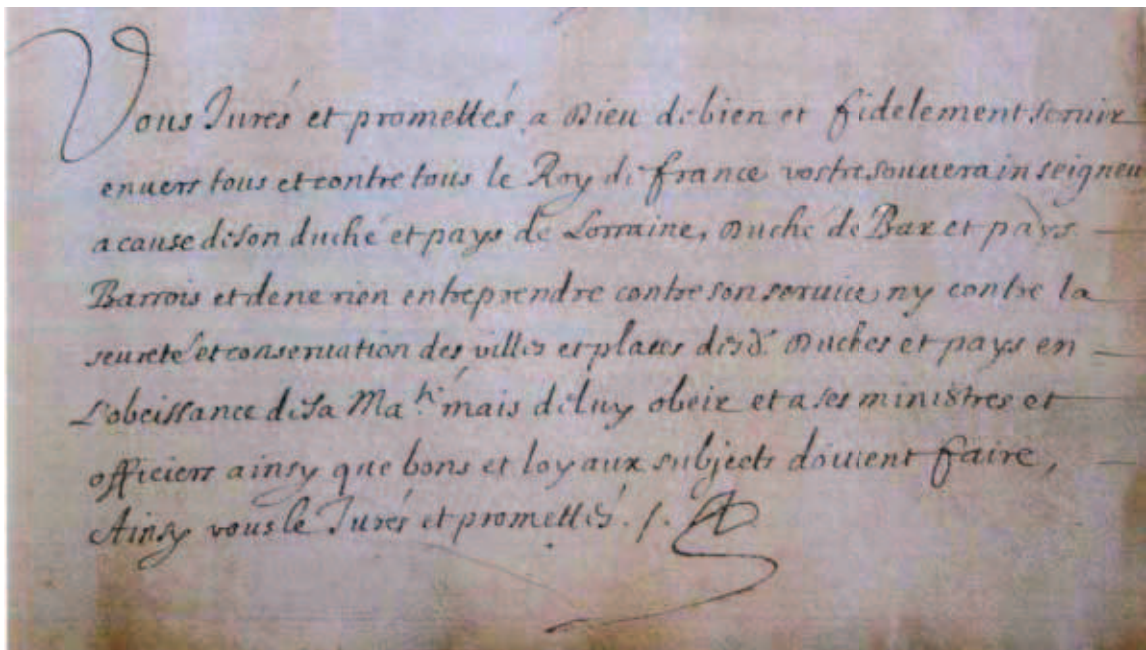 Vous Jurés et promettés a Dieu de bien et fidelement seruir
enuers tous et contre tous le Roy de france vostre souuerain seigneu
a cause de son duché et pays de Lorraine, Duché de Bar et pays
Barrois et de ne rien entreprendre contre son seruice ny contre la
seureté et conseruation des villes et places desd. Duches et pays en
L'obeissance de sa Ma.té mais de luy obeir et a ses ministres et
officiers ainsy que bons et loyaux subjects doiuent faire,
Ainsy vous le Jurés et promettés. /.